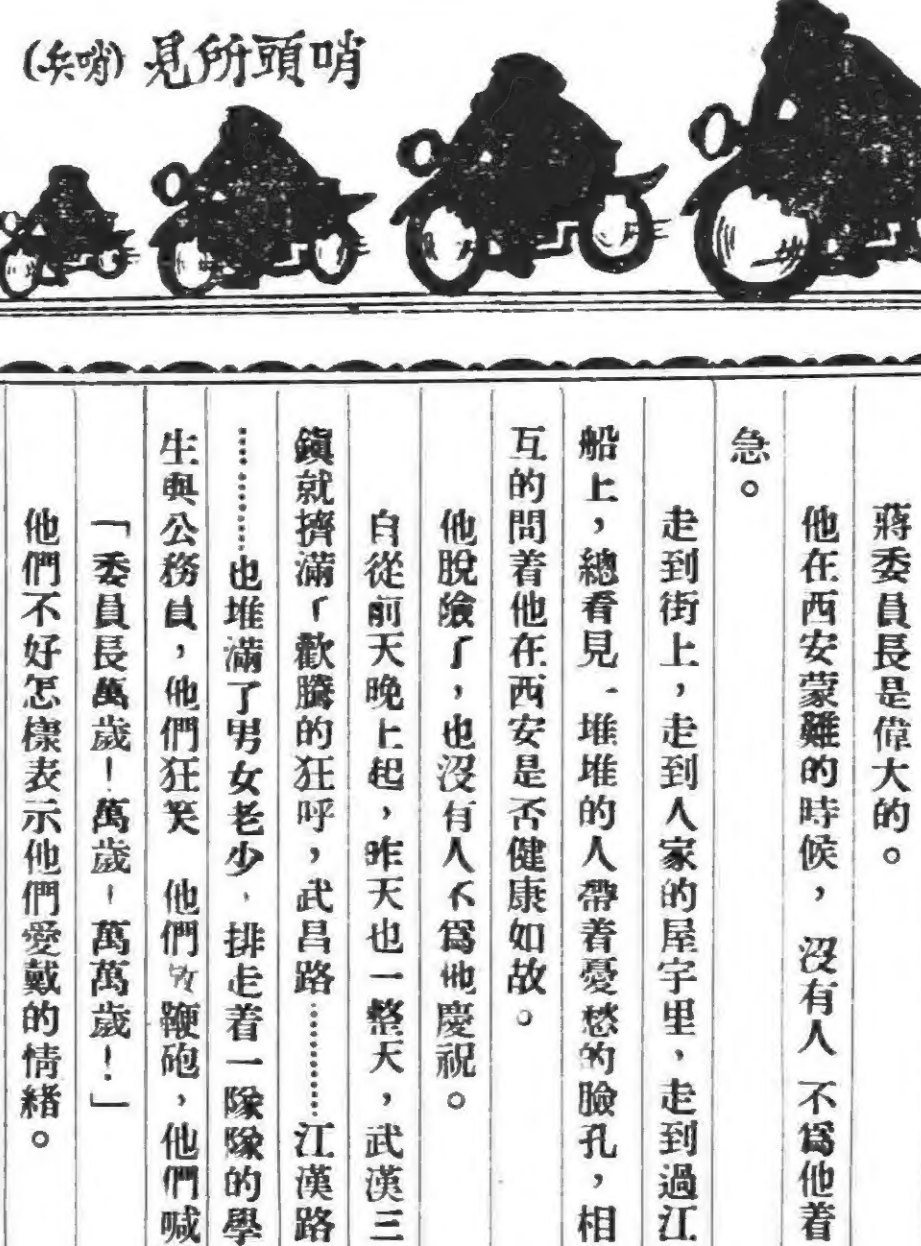 哨頭所見 (哨兵)
蔣委員長是偉大的。
他在西安蒙難的時候，沒有人不爲他着
急。
走到街上，走到人家的屋宇里，走到過江
船上，總看見一堆堆的人帶着憂愁的臉孔，相
互的問着他在西安是否健康如故。
他脫險了，也沒有人不爲他慶祝。
自從前天晚上起，昨天也一整天，武漢三
鎭就擠滿了歡騰的狂呼，武昌路…………江漢路
…………也堆滿了男女老少，排走着一隊隊的學
生與公務員，他們狂笑　他們放鞭砲，他們喊
「委員長萬歲！萬歲！萬萬歲！」
他們不好怎樣表示他們愛戴的情緖。